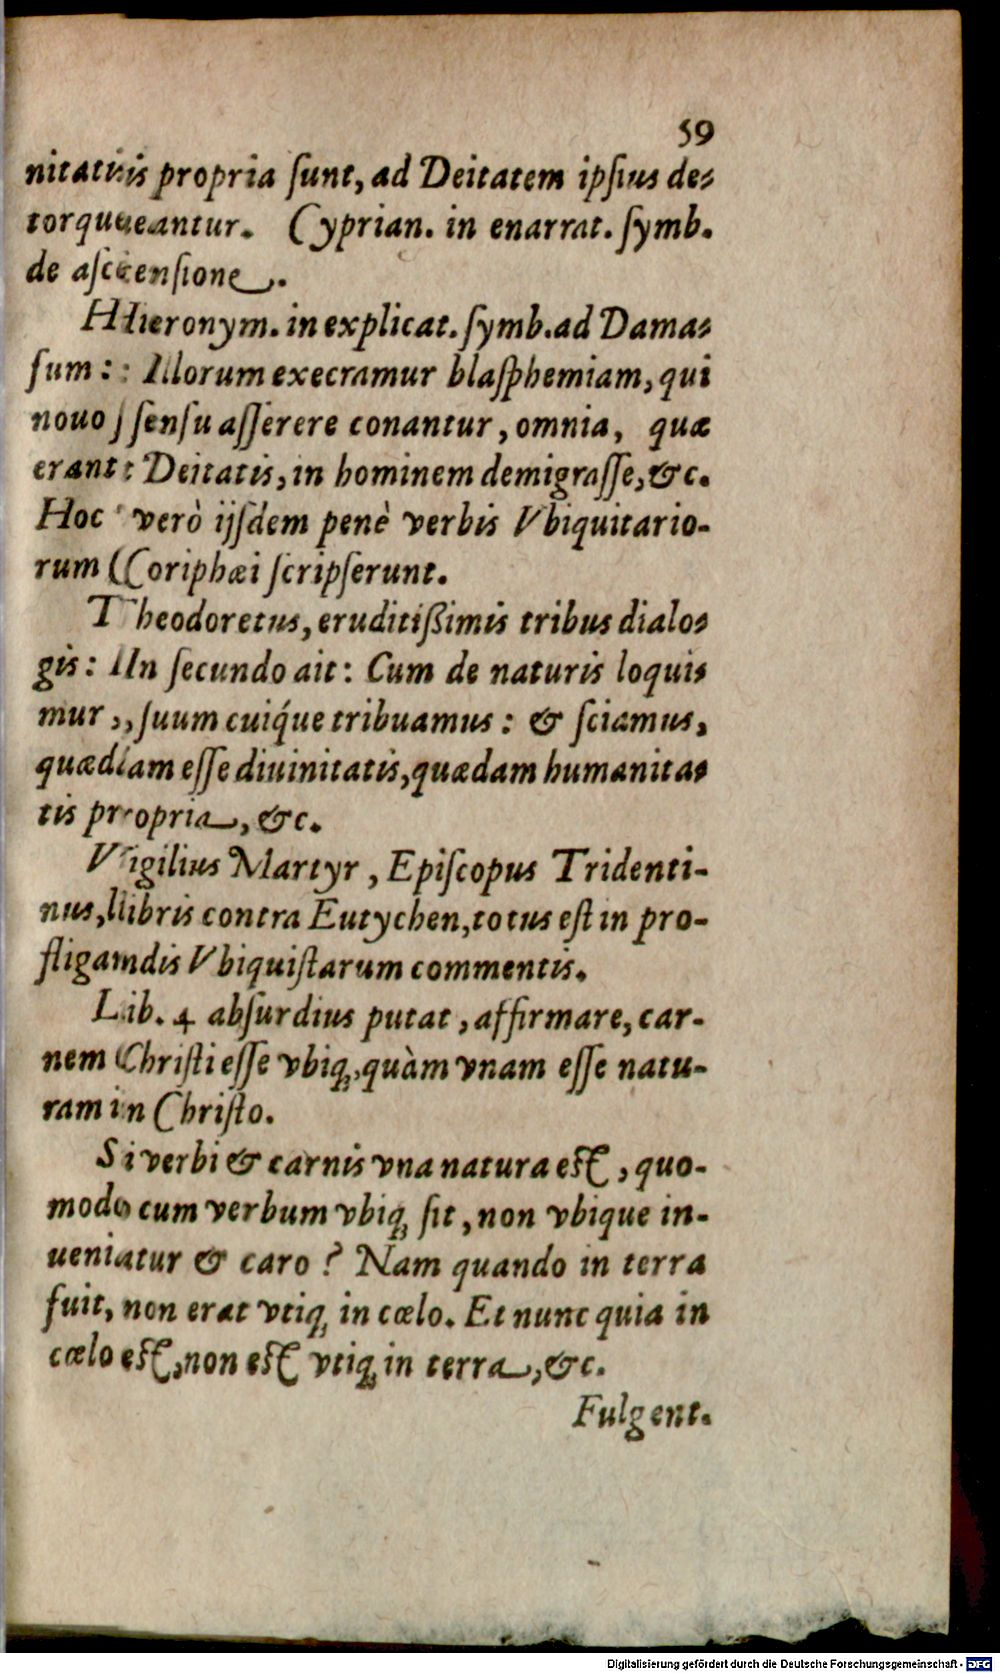 59
nitatis propria ſunt, ad Deitatem ipſius de-
torqueantur. Cyprian. in enarrat. ſymb.
de aſcenſione.
Hieronym. in explicat. ſymb. ad Dama-
ſum: Illorum execramur blaſphemiam, qui
nouo ſenſu aſſerere conantur, omnia, quæ
erant Deitatis, in hominem demigraſſe, &c.
Hoc verò ijſdem penè verbis Vbiquitario-
rum Coriphæi ſcripſerunt.
Theodoretus, eruditißimis tribus dialo-
gis: In ſecundo ait: Cum de naturis loqui-
mur, ſuum cuiq́ue tribuamus: & ſciamus,
quædam eſſe diuinitatis, quædam humanita-
tis propria, &c.
Vigilius Martyr, Epiſcopus Tridenti-
nus, libris contra Eutychen, totus eſt in pro-
fligandis Vbiquiſtarum commentis.
Lib. 4 abſurdius putat, affirmare, car-
nem Chriſti eſſe vbiq;, quàm vnam eſſe natu-
ram in Chriſto.
Si verbi & carnis vna natura eſt, quo-
modo cum verbum vbiq; ſit, non vbique in-
ueniatur & caro? Nam quando in terra
fuit, non erat vtiq; in cœlo. Et nunc quia in
cœlo eſt, non eſt vtiq; in terra, &c.
Fulgent.
Digitalisierung gefördert durch die Deutsche Forschungsgemeinschaft - DFG